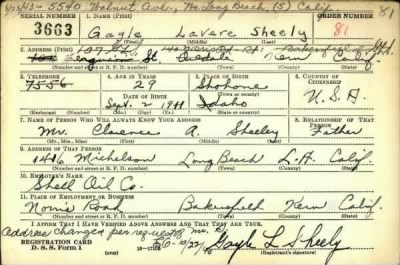 5540 Walnut Ave., No. Long Beach, (5) Calif. 81
SERIAL NUMBER 1. NAME (Print) ORDER NUMBER
3663 Gayle LaVare Sheely 81
(First) (Middle) (Last)
2. ADDRESS (Print)
Ferguson St. Kern Calif.
(Number and street or R. F. D. number) (Town) (County) (State)
3. TELEPHONE 4. AGE IN YEARS 5. PLACE OF BIRTH 6. COUNTRY OF CITIZENSHIP
7556 29 Shohone
DATE OF BIRTH (Town or county)
Sept. 2 1911 Idaho U.S.A.
(Exchange) (Number) (Mo.) (Day) (Yr.) (State or country)
7. NAME OF PERSON WHO WILL ALWAYS KNOW YOUR ADDRESS 8. RELATIONSHIP OF THAT PERSON
Mr. Clarence A. Sheeley Father
(Mr., Mrs., Miss) (First) (Middle) (Last)
9. ADDRESS OF THAT PERSON
1416 Michelson Long Beach L.A. Calif.
(Number and street or R. F. D. number) (Town) (County) (State)
10. EMPLOYER'S NAME
Shell Oil Co.
11. PLACE OF EMPLOYMENT OR BUSINESS
Norris Road Bakersfield Kern Calif.
(Number and street or R. F. D. number) (Town) (County) (State)
I AFFIRM THAT I HAVE VERIFIED ABOVE ANSWERS AND THAT THEY ARE TRUE.
Address changed per request
REGISTRATION CARD
D. S. S. Form 1 Gayle L Sheely
(Registrant's signature)